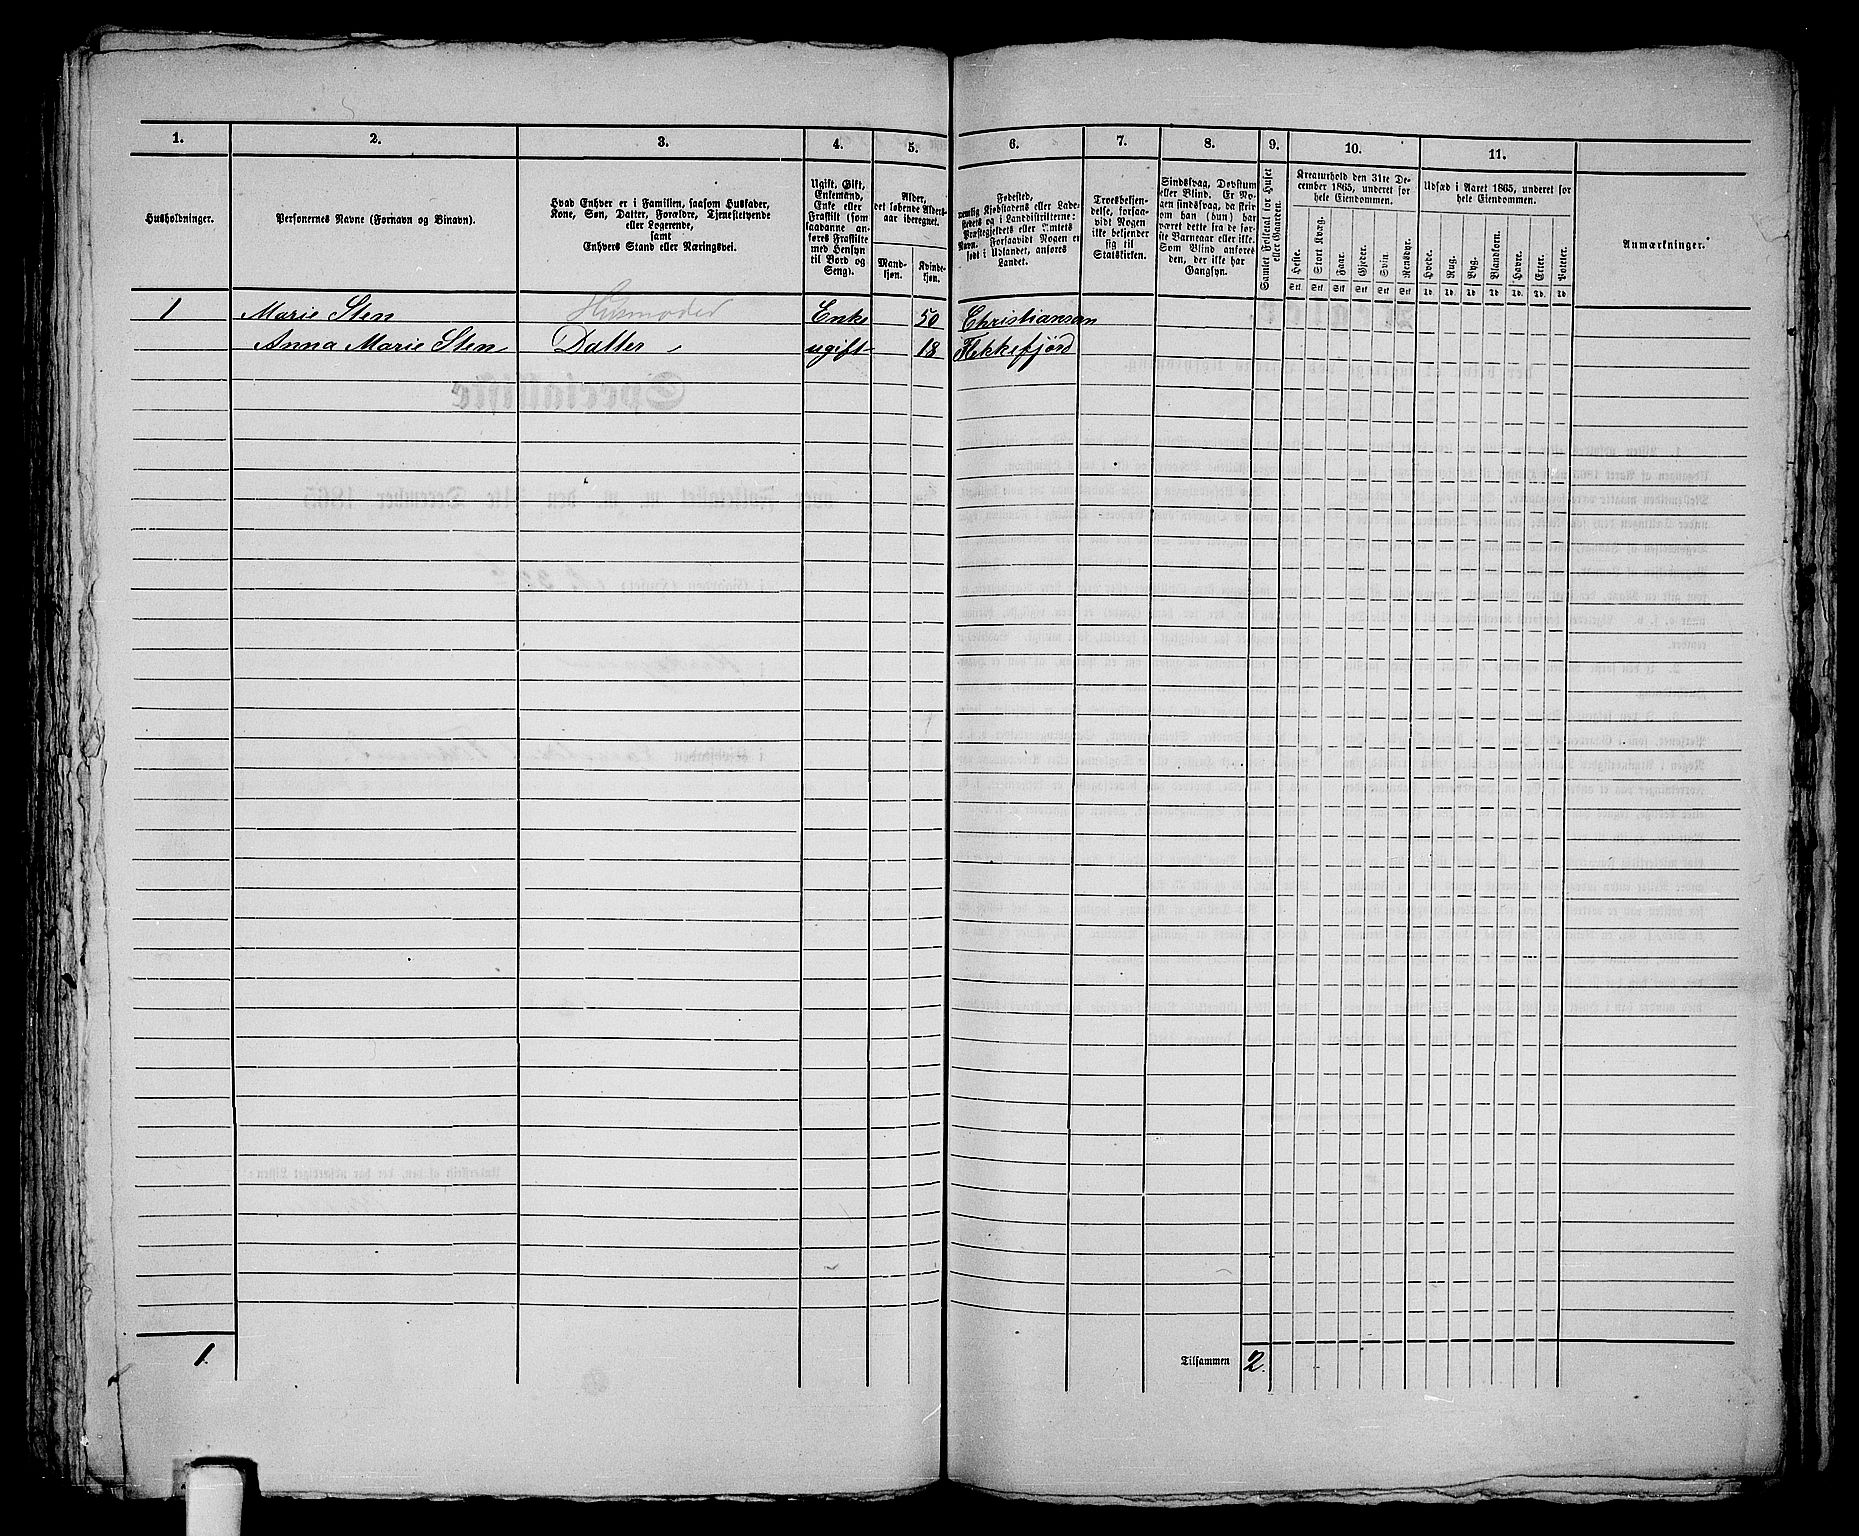 1. 2. 3. 4. 5. 6. 7. 8. 9. 10. 11.
Husholdninger.
Personernes Navne (Fornavn og Binavn).
Hvad Enhver er i Familien, saasom Husfader,
Kone, Søn, Datter, Forældre, Tjenestetyende
eller Logerende,
samt
Enhvers Stand eller Næringsvei.
Ugift, Gift,
Enkemand,
Enke eller
Fraskilt (som
saadanne an-
føres Fraskilte
med Hensyn
til Bord og
Seng).
Alder,
det løbende Alders-
aar iberegnet.
Mand-
kjøn.
Kvinde-
kjøn.
Fødested,
nemlig Kjøbstadens eller Lade-
stedets og i Landdistrikterne:
Præstegjeldets eller Amtets
Navn. Forsaavidt Nogen er
født i Udlandet, anføres
Landet.
Troesbekjen-
delse, forsaa-
vidt Nogen
ikke bekjender
sig til
Statskirken.
Sindssvag, Døvstum
eller Blind. Er No-
gen sindssvag, da skriv
om han (hun) har
været dette fra de før-
ste Barneaar eller ikke.
Som Blind anføres
den, der ikke har
Gangsyn.
Samlet Folketal for Huset
eller Gaarden.
Kreaturhold den 31te De-
cember 1865, underet for
hele Eiendommen.
Heste. Stort Kvæg. Faar. Gjeder. Svin. Rensdyr.
Stk Stk Stk Stk Stk Stk
Udsæd i Aaret 1865, underet for
hele Eiendommen.
Hvede. Rug. Byg. Blandkorn. Havre. Erter. Poteter.
Td. Td. Td. Td. Td. Td. Td.
Anmærkninger.
1 Marie Sten Husmoder Enke 50 Christiansan
Anna Marie Sten Datter ugift 18 Flekkefjörd
1. Tilsammen 2.